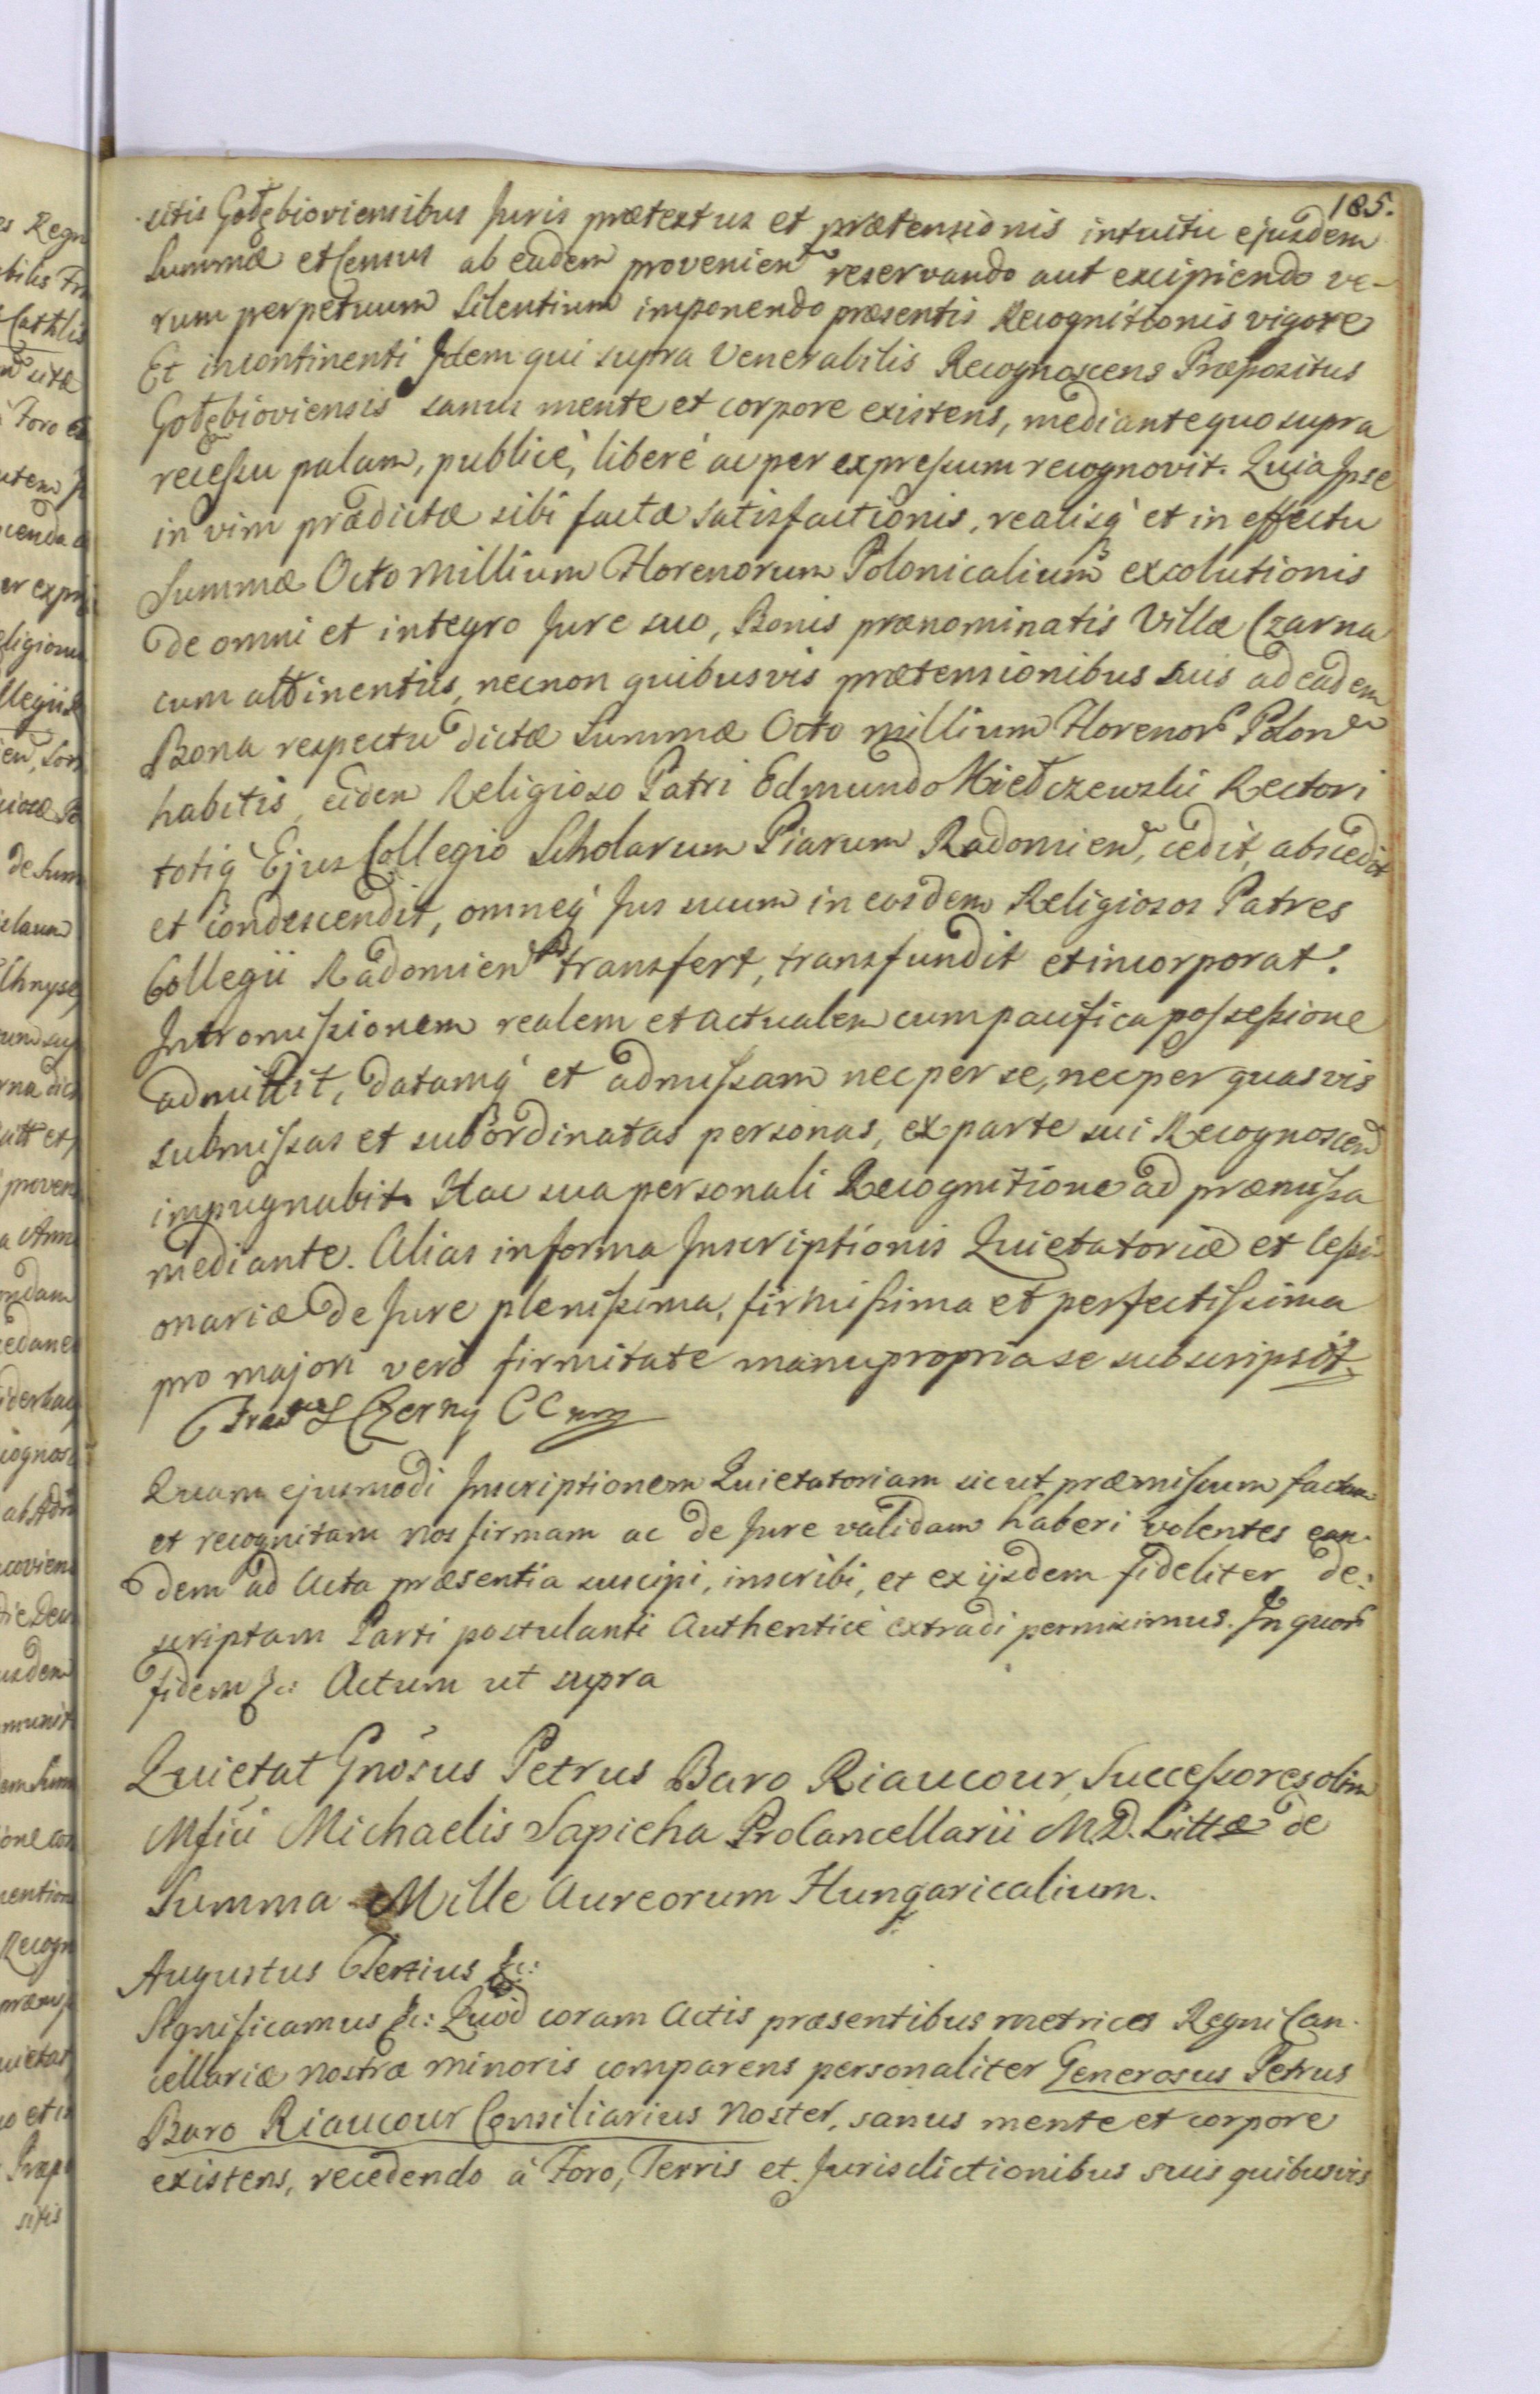 185.
sitis Gołębioviensibus Juris prætextus et prætensionis intuitu ejusdem
Summæ et Census ab eadem provenien reservando aut excipiendo ve-
rum perpetuum Silentium imponendo præsentis Recognitionis vigore
Et incontinenti Idem qui supra Venerabilis Recognoscens Præpositus
Gołębioviensis sanus mente et corpore existens, mediante quo supra
recessu palam, publicè, liberè ac per expressum recognovit. Quia Ipse
in vim prædictæ sibi factæ satisfactionis, realisq́ et in effectu
Summæ Octo Millium Florenorum Polonicalium exolutionis
de omni et integro Jure suo, Bonis prænominatis Villæ Czarna
cum attinentiis, necnon quibusvis prætensionibus suis ad eadem
Bona respectu dictæ Summæ Octo Millium Florenor Polon
habitis, eidem Religioso Patri Edmundo Kiełczewski Rectori
totiq́ Ejus Collegio Scholarum Piarum Radomien, cedit, abscedit
et condescendit, omneq́ Jus suum in eosdem Religiosos Patres
Collegii Radomien transfert, transfundit et incorporat.
Intromissionem realem et actualem cum pacifica possessione
admittit, datamq́ et admissam nec per se, nec per quasvis
submissas et subordinatas personas, ex parte sui Recognoscen
impugnabit. Hac sua personali Recognitione ad præmissa
mediante. Alias in forma Inscriptionis Quietatoriæ et Cessi-
onariæ de Jure plenissima, firmissima et perfectissima
pro majori verò firmitate manu propria se subscripsit.
Czerny CC mp
Quam ejusmodi Inscriptionem Quietatoriam sicut præmissum factam
et recognitam nos firmam ac de Jure validam haberi volentes ean-
dem ad Acta præsentia suscipi, inscribi, et ex ijsdem fideliter de:
scriptam Parti postulanti Authenticè extradi permisimus. In quor
fidem &c: Actum ut supra
Quietat Gnösus Petrus Baro Riaucour, Successores olim
Mfici Michaelis Sapieha Procancellarii M.D. Littæ de
Summa Mille Aureorum Hungaricalium.
Augustus Tertius &c:
Significamus &c: Quod coram Actis præsentibus metrices Regni Can-
cellariæ nostræ minoris comparens personaliter Generosus Petrus
Baro Riaucour Consiliarius Noster, sanus mente et corpore
existens, recedendo à Foro, Terris et Jurisdictionibus suis quibusvis